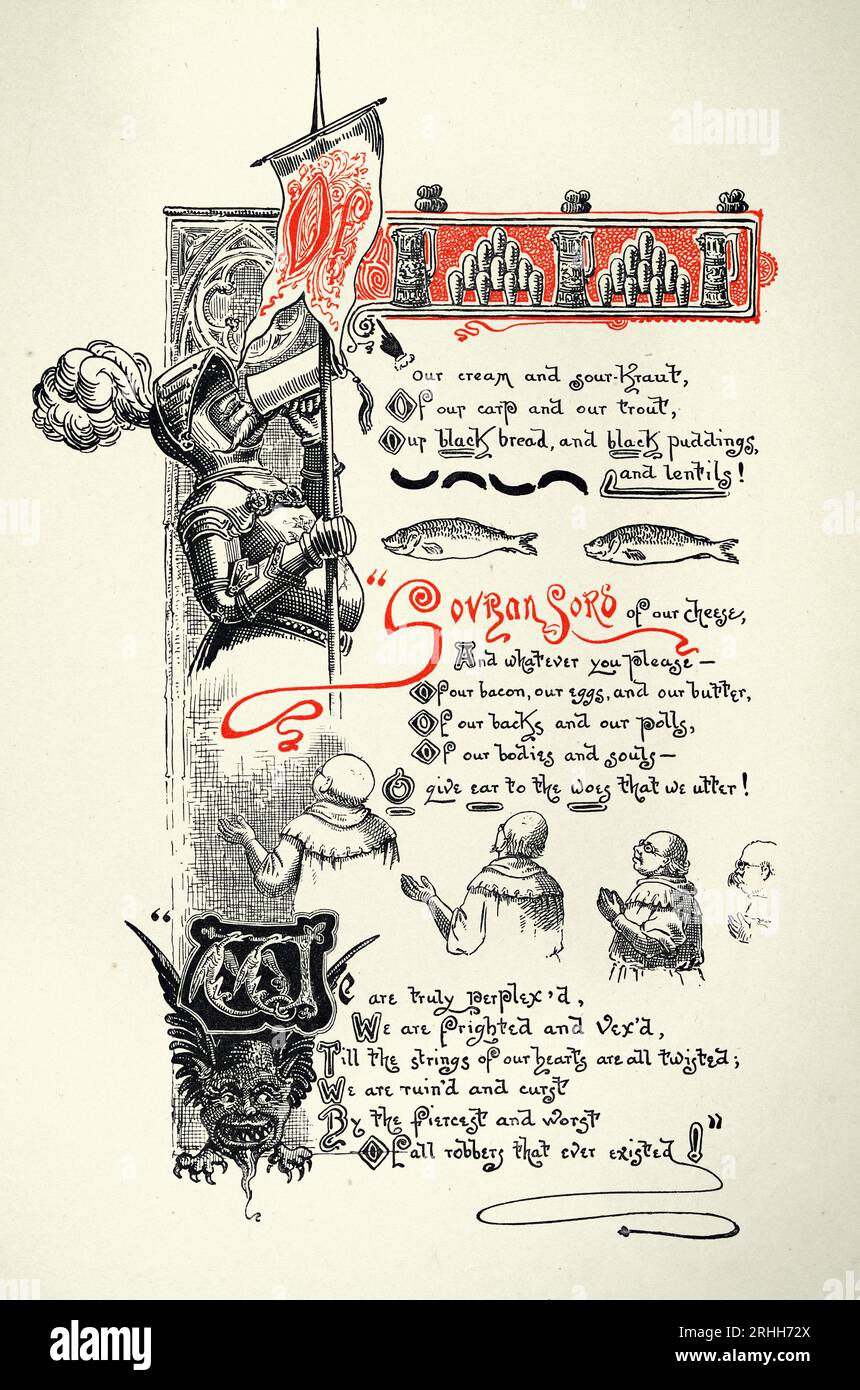 Of
our cream and sour-kraut,
Of our carp and our trout,
Our black bread, and black puddings,
and lentils!
“Sovran Lord of our cheese,
And whatever you please —
Of our bacon, our eggs, and our butter,
Of our backs and our polls,
Of our bodies and souls —
O give ear to the woes that we utter!
“We are truly perplex'd,
We are frighted and vex'd,
Till the strings of our hearts are all twisted;
We are ruin'd and curst
By the fiercest and worst
Of all robbers that ever existed!”
alamy
alamy
Image ID: 2RHH72X
www.alamy.com